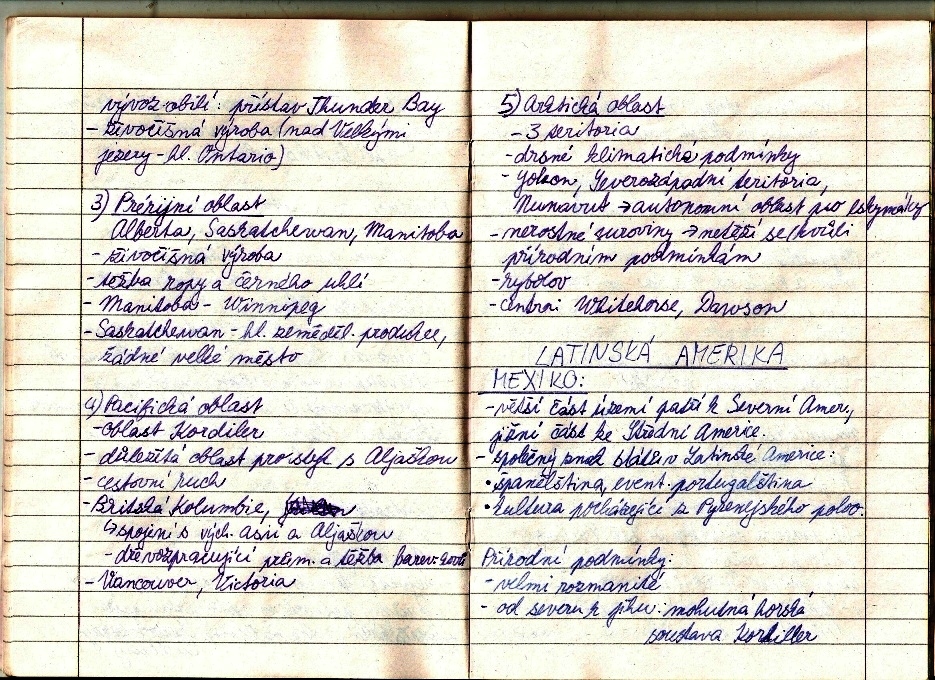 vývoz obilí: přístav Thunder Bay
- živočišná výroba (nad Velkými
jezery - hl. Ontario)
3) Prérijní oblast
Alberta, Saskatchewan, Manitoba
- živočišná výroba
- těžba ropy a černého uhlí
- Manitoba - Winnipeg
- Saskatchewan - hl. zeměděl. produkce,
žádné velké město
4) Pacifická oblast
- oblast Kordiler
- důležitá oblast pro styk s Aljaškou
- cestovní ruch
- Britská Kolumbie,
↳ spojení s vých. asií a Aljaškou
- dřevozpracující prům. a těžba barev. kovů
- Vancouver, Victoria
5) Arktická oblast
- 3 teritoria
- drsné klimatické podmínky
- Yokon, Severozápadní teritoria,
Nunavut → autonomní oblast pro eskymáky
- nerostné suroviny → netěží se kvůli
přírodním podmínkám
- rybolov
- centrai Whitehorse, Dawson
LATINSKÁ AMERIKA
MEXIKO:
- větší část území patří k Severní Amer.,
jižní část ke Střední Americe.
- společný znak států v Latinské Americe:
• španělština, event. portugalština
• kultura pocházející z Pyrenejského polov.
Přírodní podmínky:
- velmi rozmanité
- od severu k jihu: mohutná horská
soustava Kordiller